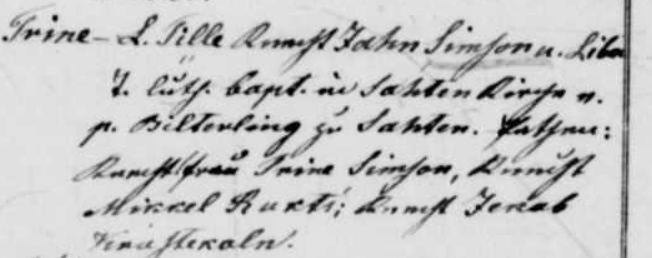 Trine - L. Tille Knecht Jahn Simson u. Liba
T. luth. bapt. in Sahten Kirche v.
p. Bilterling zu Sahten. Pathen:
Knechtsfrau Trine Simson, Knecht
Mikkel Rukts; Knecht Jekab